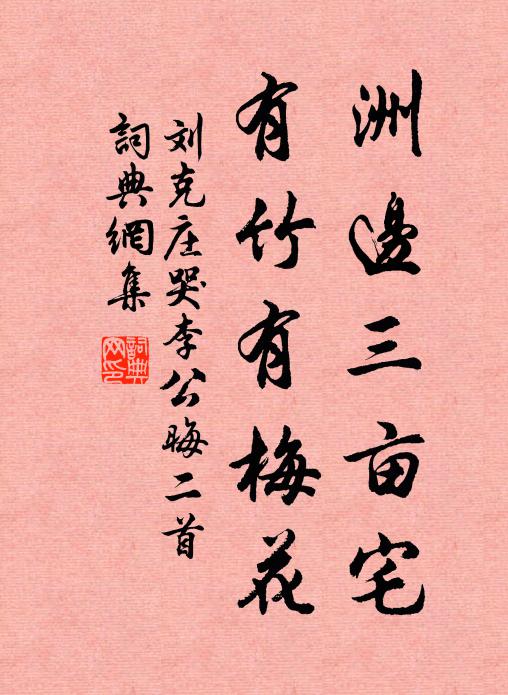 洲邊三亩宅
有竹有梅花
刘克庄哭李公晦二首
詞典網集
詞典網印